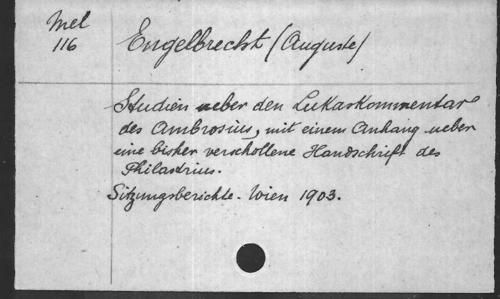 Mel
116
Engelbrecht (Auguste)
Studien ueber den Lukaskommentar
des Ambrosius, mit einem Anhang ueber
eine bisher verschollene Handschrift des
Philastrius.
Sitzungsberichte. Wien 1903.